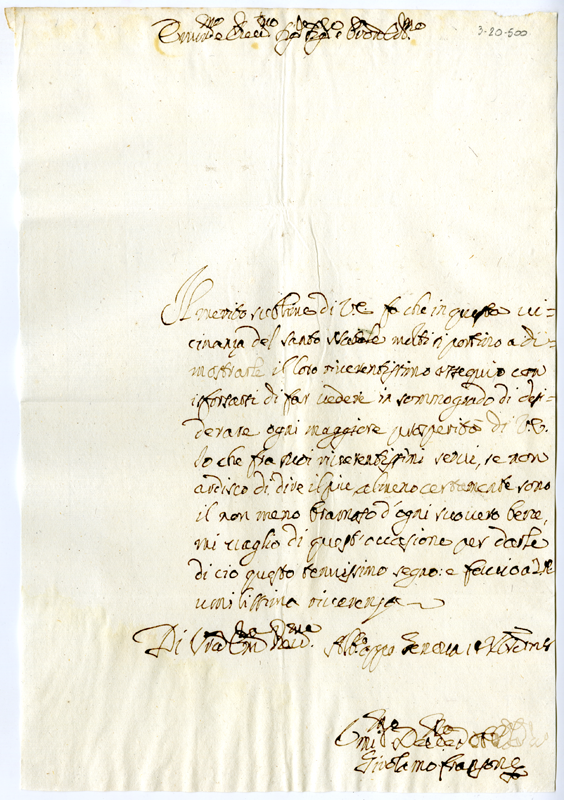 3-20-500
Il merito sublime di V.E. fa che in questa vi=
cinanza del santo Natale molti si portino a di=
mostrarle il loro riverentissimo ossequio con
isforzarsi di far vedere in sommo grado di desi=
derare ogni maggiore prosperità di V.E.
lo che fra suoi riverentissimi servi, se non
ardisco di dire il più almeno certamente sono
il non meno bramoso d'ogni suo vero bene,
mi vaglio di quest'occasione per darle
di ciò questo tenuissimo segno: e faccio a V.E.
umilissima riverenza
Di Vra Em.za Rev.ma
Girolamo Franzone